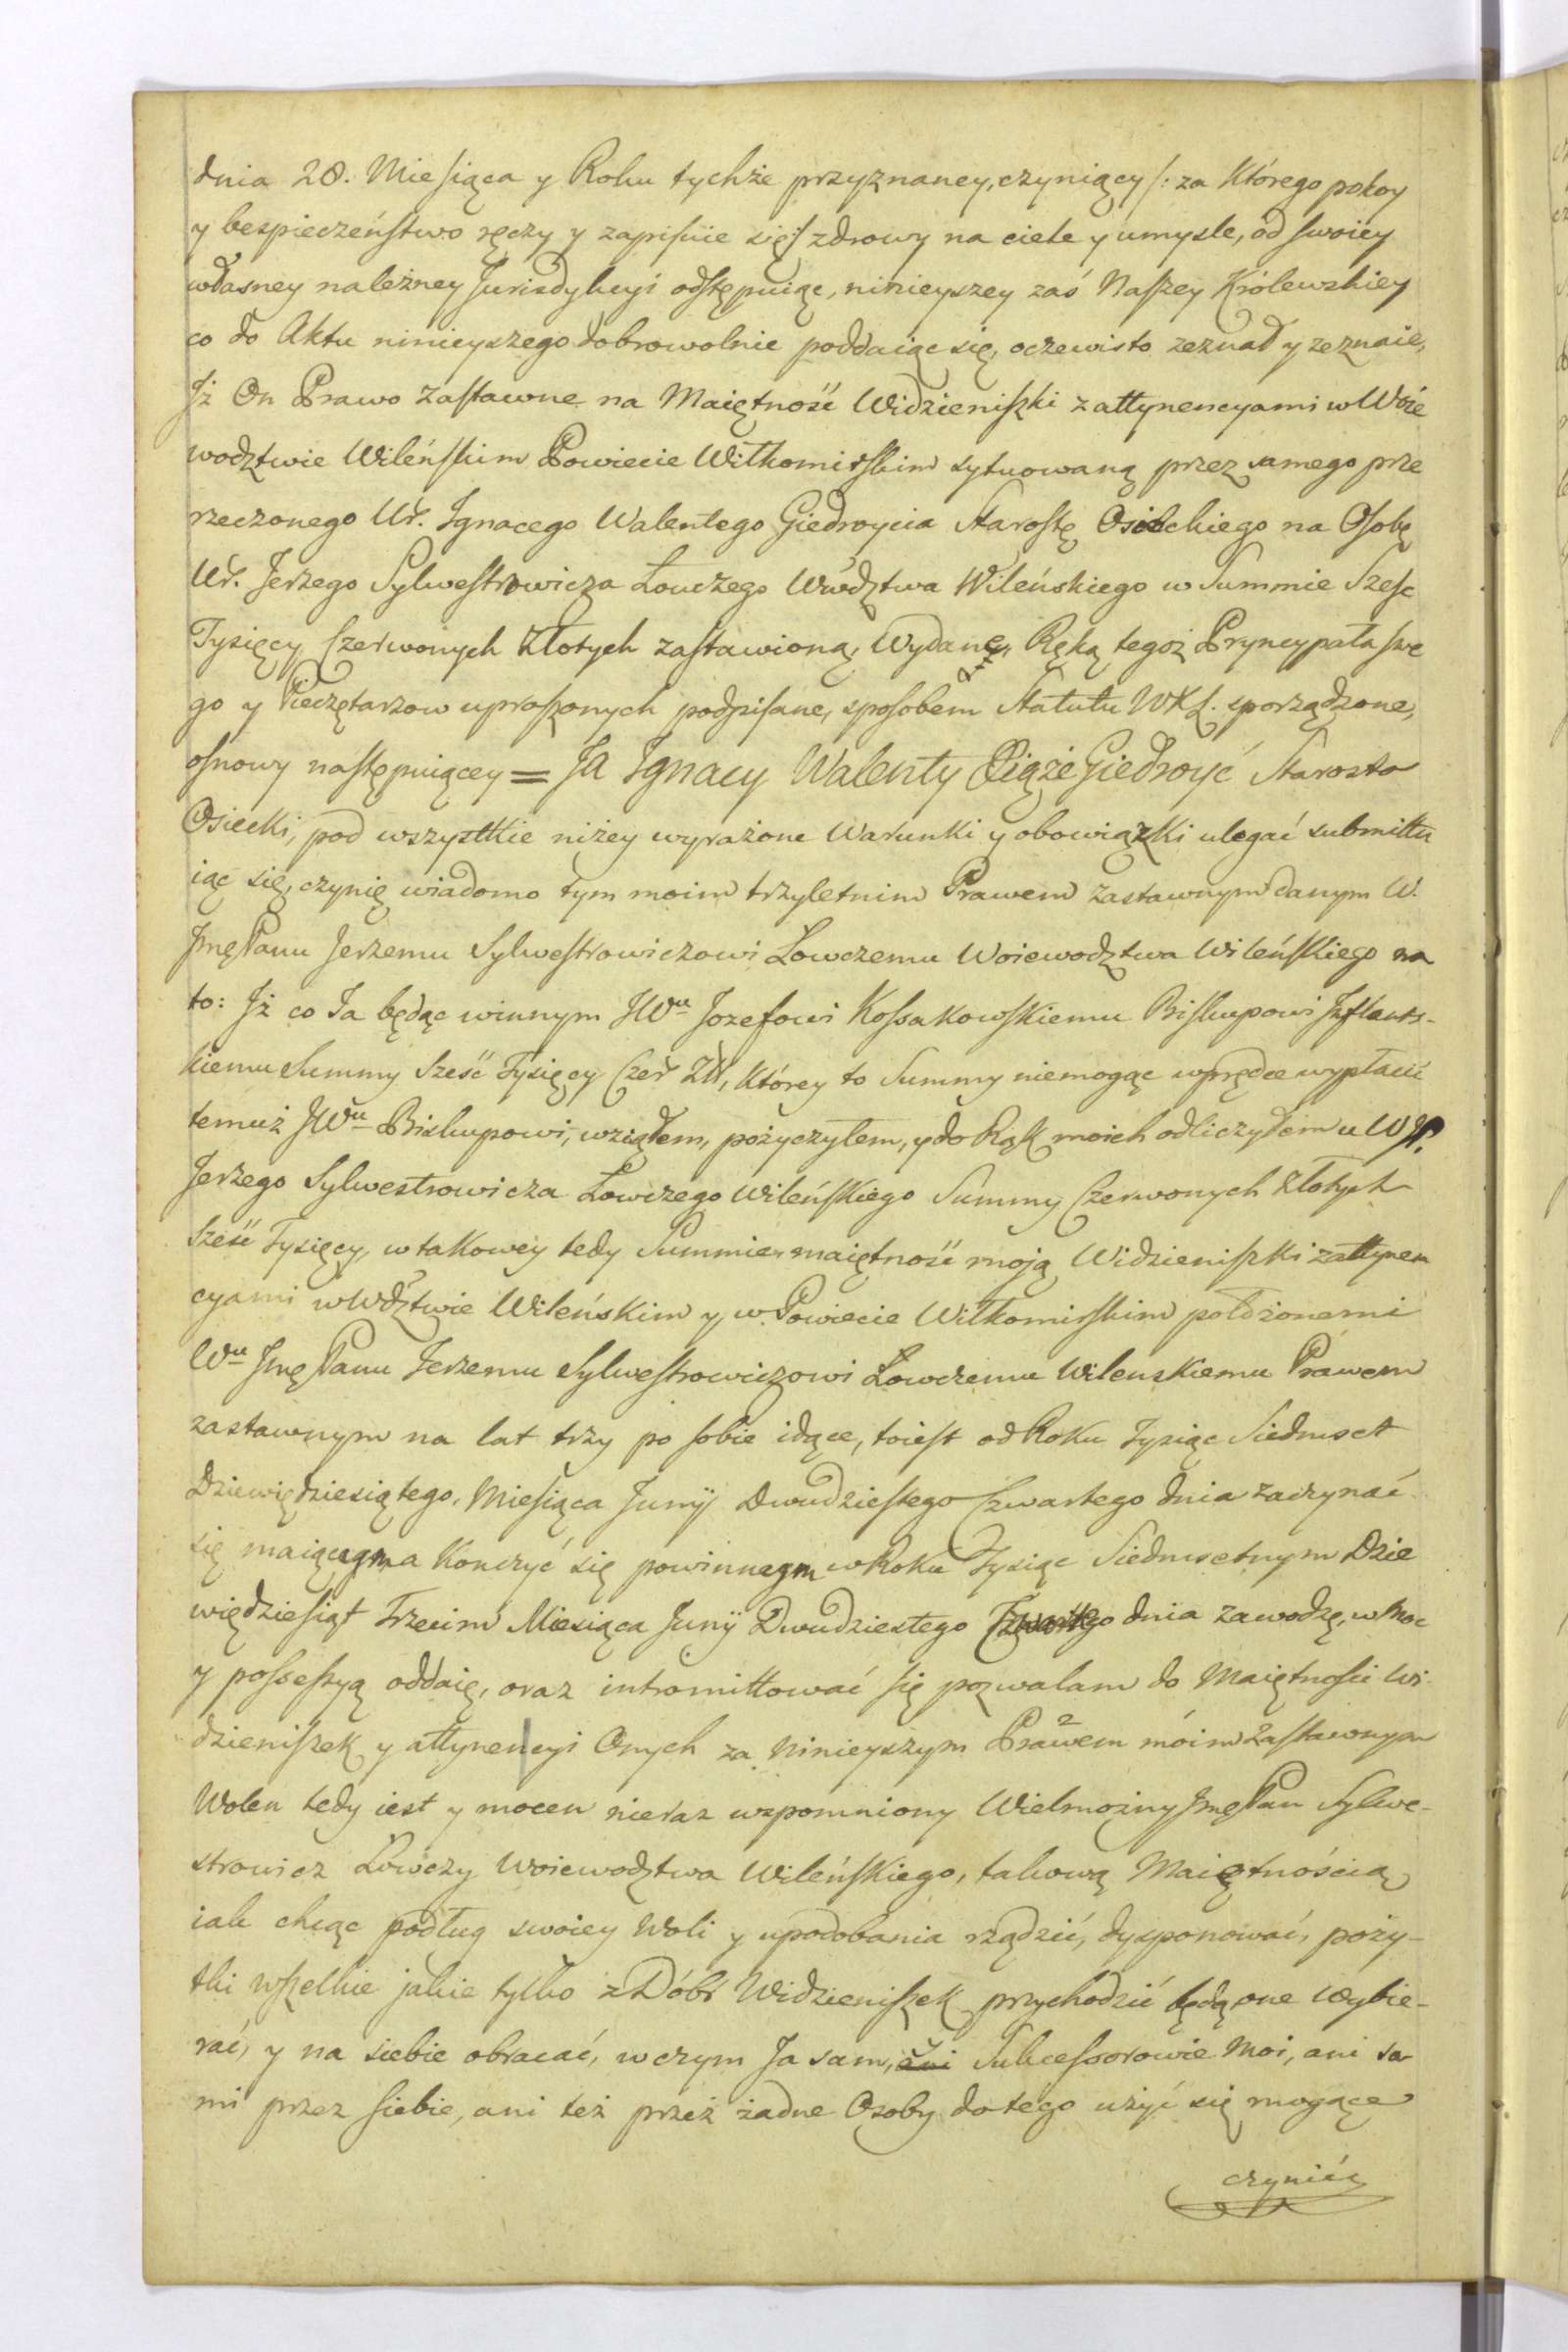 dnia 28. Miesiąca y Roku tychże przyznaney, czyniący /: za którego pokoy
y bespieczeństwo ręczy y zapisuie się :/ zdrowy na ciele y umysle, od swoiey
własney należney Jurisdykcyi odstępuiąc, ninieyszey zaś Naszey Królewskiey
co do Aktu ninieyszego dobrowolnie poddaiąc się, oczewisto zeznał y zeznaie,
Jż On Prawo Zastawne na Maiętność Widzieniszki z attynencyami w Woie
wodztwie Wileńskim Powiecie Wiłkomirskim sytuowaną przez samego prze
rzeczonego Ur. Ignacego Walentego Giedroycia Starostę Osieckiego na Osobę
Ur. Jerzego Sylwestrowicza Łowczego Wwdztwa Wileńskiego w Summie Szesc
Tysięcy Czerwonych Złotych zastawioną, Wydane, Ręką tegoż Pryncypała swe
go y Pieczętarzow uproszonych podpisane, sposobem Statutu WXL. sporządzone,
osnowy następuiącey = JA Ignacy Walenty Xiąże Giedroyć Starosta
Osiecki, pod wszystkie niżey wyrażone Warunki y obowiązki ulegać submittu
iąc się, czynię wiadomo tym moim trzyletnim Prawem zastawnym danym W.
Jmę Panu Jerzemu Sylwestrowiczowi Łowczemu Woiewodztwa Wileńskiego na
to: Jż co Ja będąc winnym JWu Jozefowi Kossakowskiemu Biskupowi Inflants-
kiemu Summy Sześć Tysięcy Czer Zł, którey to Summy niemogąc wprędce wypłacić
temuż JWu Biskupowi, wziąłem, pożyczyłem, y do Rąk moich odliczyłem u WJP.
Jerzego Sylwestrowicza Łowczego Wileńskiego Summy Czerwonych Złotych
Sześć Tysięcy, w takowey tedy Summie, maiętność moją Widzieniszki z attynen
cyami w Wdztwie Wileńskim y w Powiecie Wiłkomirskim położonemi
Wu Jmę Panu Jerzemu Sylwestrowiczowi Łowczemu Wilenskiemu Prawem
zastawnym na lat trzy po sobie idące, toiest od Roku Tysiąc Siedmset
Dziewiędziesiątego, Miesiąca Junij Dwudziestego Czwartego dnia zaczynać
się maiącym, a konczyć się powinnym w Roku Tysiąc Siedmsetnym Dzie
więdziesiąt Trzecim Miesiąca Junij Dwudziestego Czwartego dnia zawodzę, w Moc
y possessyą oddaię, oraz intromittować się pozwalam do Maiętności Wi-
dzieniszek y attynencyi Onych za ninieyszym Prawem moim 2 Zastawnym
Wolen tedy iest y mocen nieraz wspomniony Wielmożny Jmę Pan Sylwe-
strowicz Łowczy Woiewodztwa Wileńskiego, takową Maiętnością
iak chcąc podług swoiey Woli y upodobania rządzić, dysponować, poży-
tki wszelkie jakie tylko z Dóbr Widzieniszek przychodzić będą one wybie-
rać, y na siebie obracać, w czym Ja sam, ani Sukcessorowie Moi, ani sa
mi przez siebie, ani też przez żadne Osoby do tego użyć się mogące
czynić